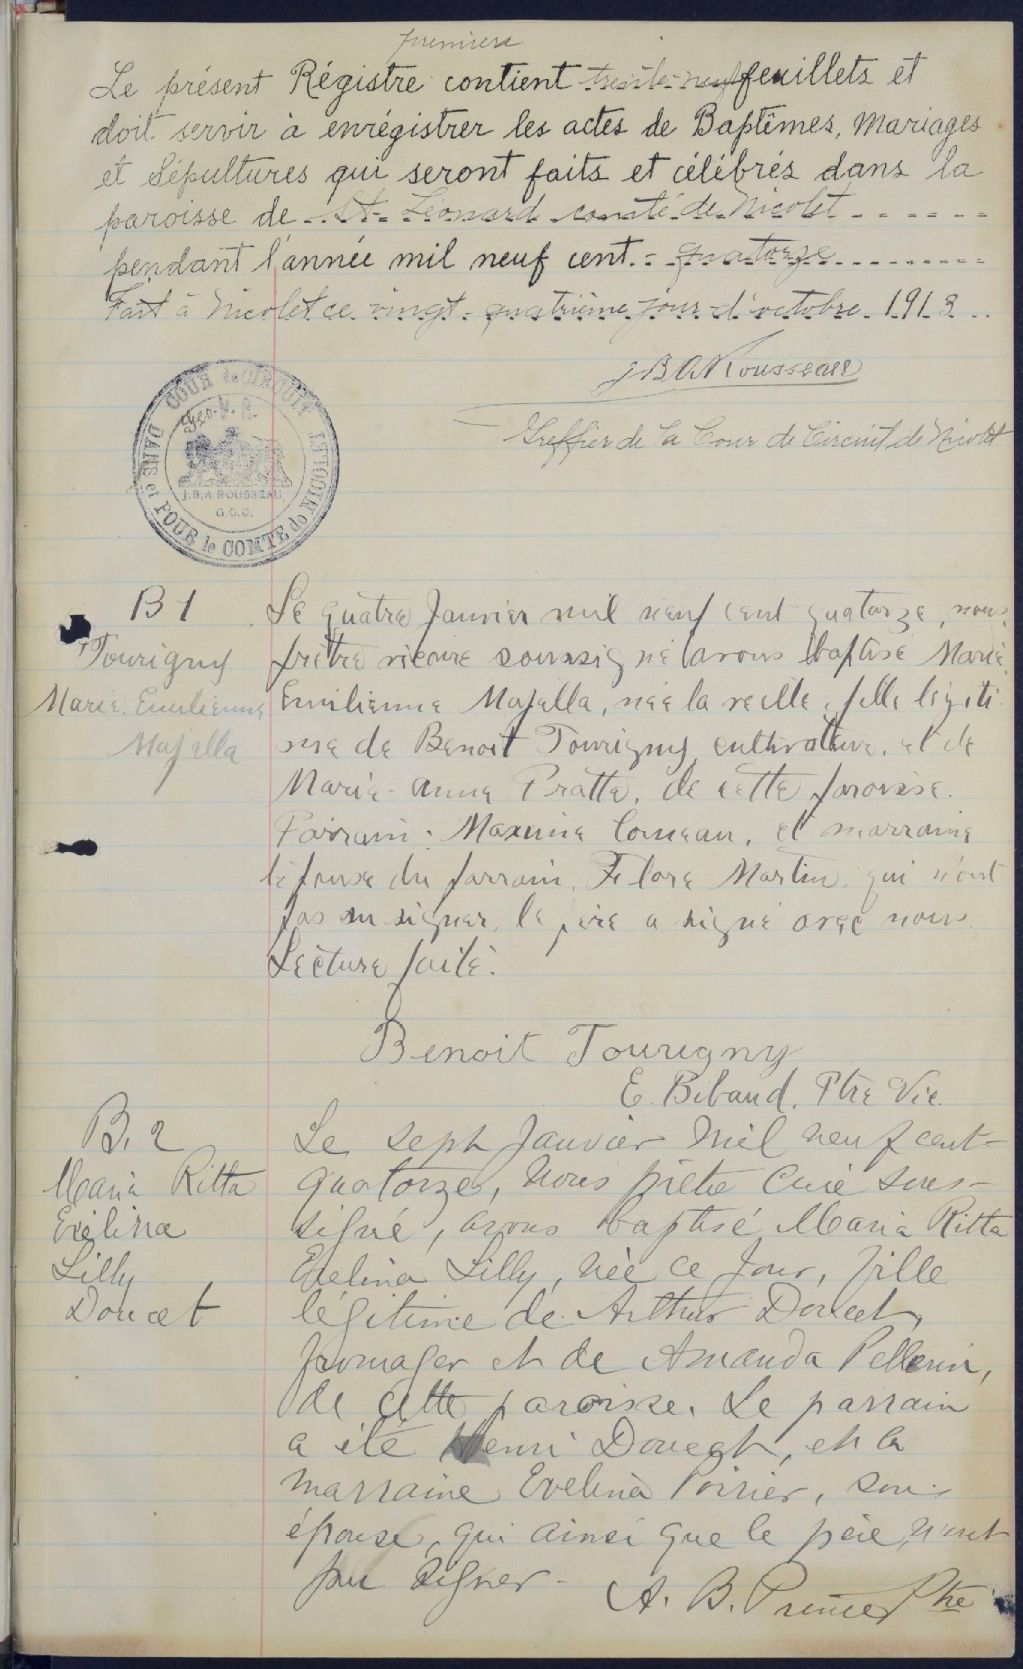 premiers
Le présent Régistre contient trente-neuf feuillets et
doit servir à enrégistrer les actes de Baptêmes, Mariages
et Sépultures qui seront faits et célébrés dans la
paroisse de St Léonard comté de Nicolet
pendant l'année mil neuf cent - quatorze
Fait à Nicolet ce vingt-quatrième jour d'octobre 1913
J B A Rousseau
Greffier de la Cour de Circuit de Nicolet
COUR de CIRCUIT DANS et POUR le COMTE de NICOLET
Geo. V. R.
J.B.A. ROUSSEAU
G.C.C.
B 1
Tourigny
Marie. Emilienne
Majella
Le quatre Janvier mil neuf cent quatorze, nous,
prêtre vicaire soussigné avons baptisé Marie
Emilienne Majella, née la veille, fille légiti
me de Benoit Tourigny, cultivateur, et de
Marie-Anne Pratte, de cette paroisse.
Parrain: Maxime Comeau, et marraine
l'épouse du parrain, Flore Martin, qui n'ont
pas su signer, le père a signé avec nous.
Lecture faite.
Benoit Tourigny
E. Bibaud, Ptre Vic.
B. 2
Maria Ritta
Evélina
Lilly
Doucet
Le sept Janvier mil neuf cent-
quatorze, nous prêtre curé sous-
signé, avons baptisé Maria Ritta
Evelina Lilly, née ce jour, fille
légitime de Arthur Doucet,
fromager et de Amanda Pellerin,
de cette paroisse. Le parrain
a été Henri Doucet, et la
marraine Evelina Poirier, son
épouse, qui ainsi que le père n'ont
pu signer -
A. B. Ptre